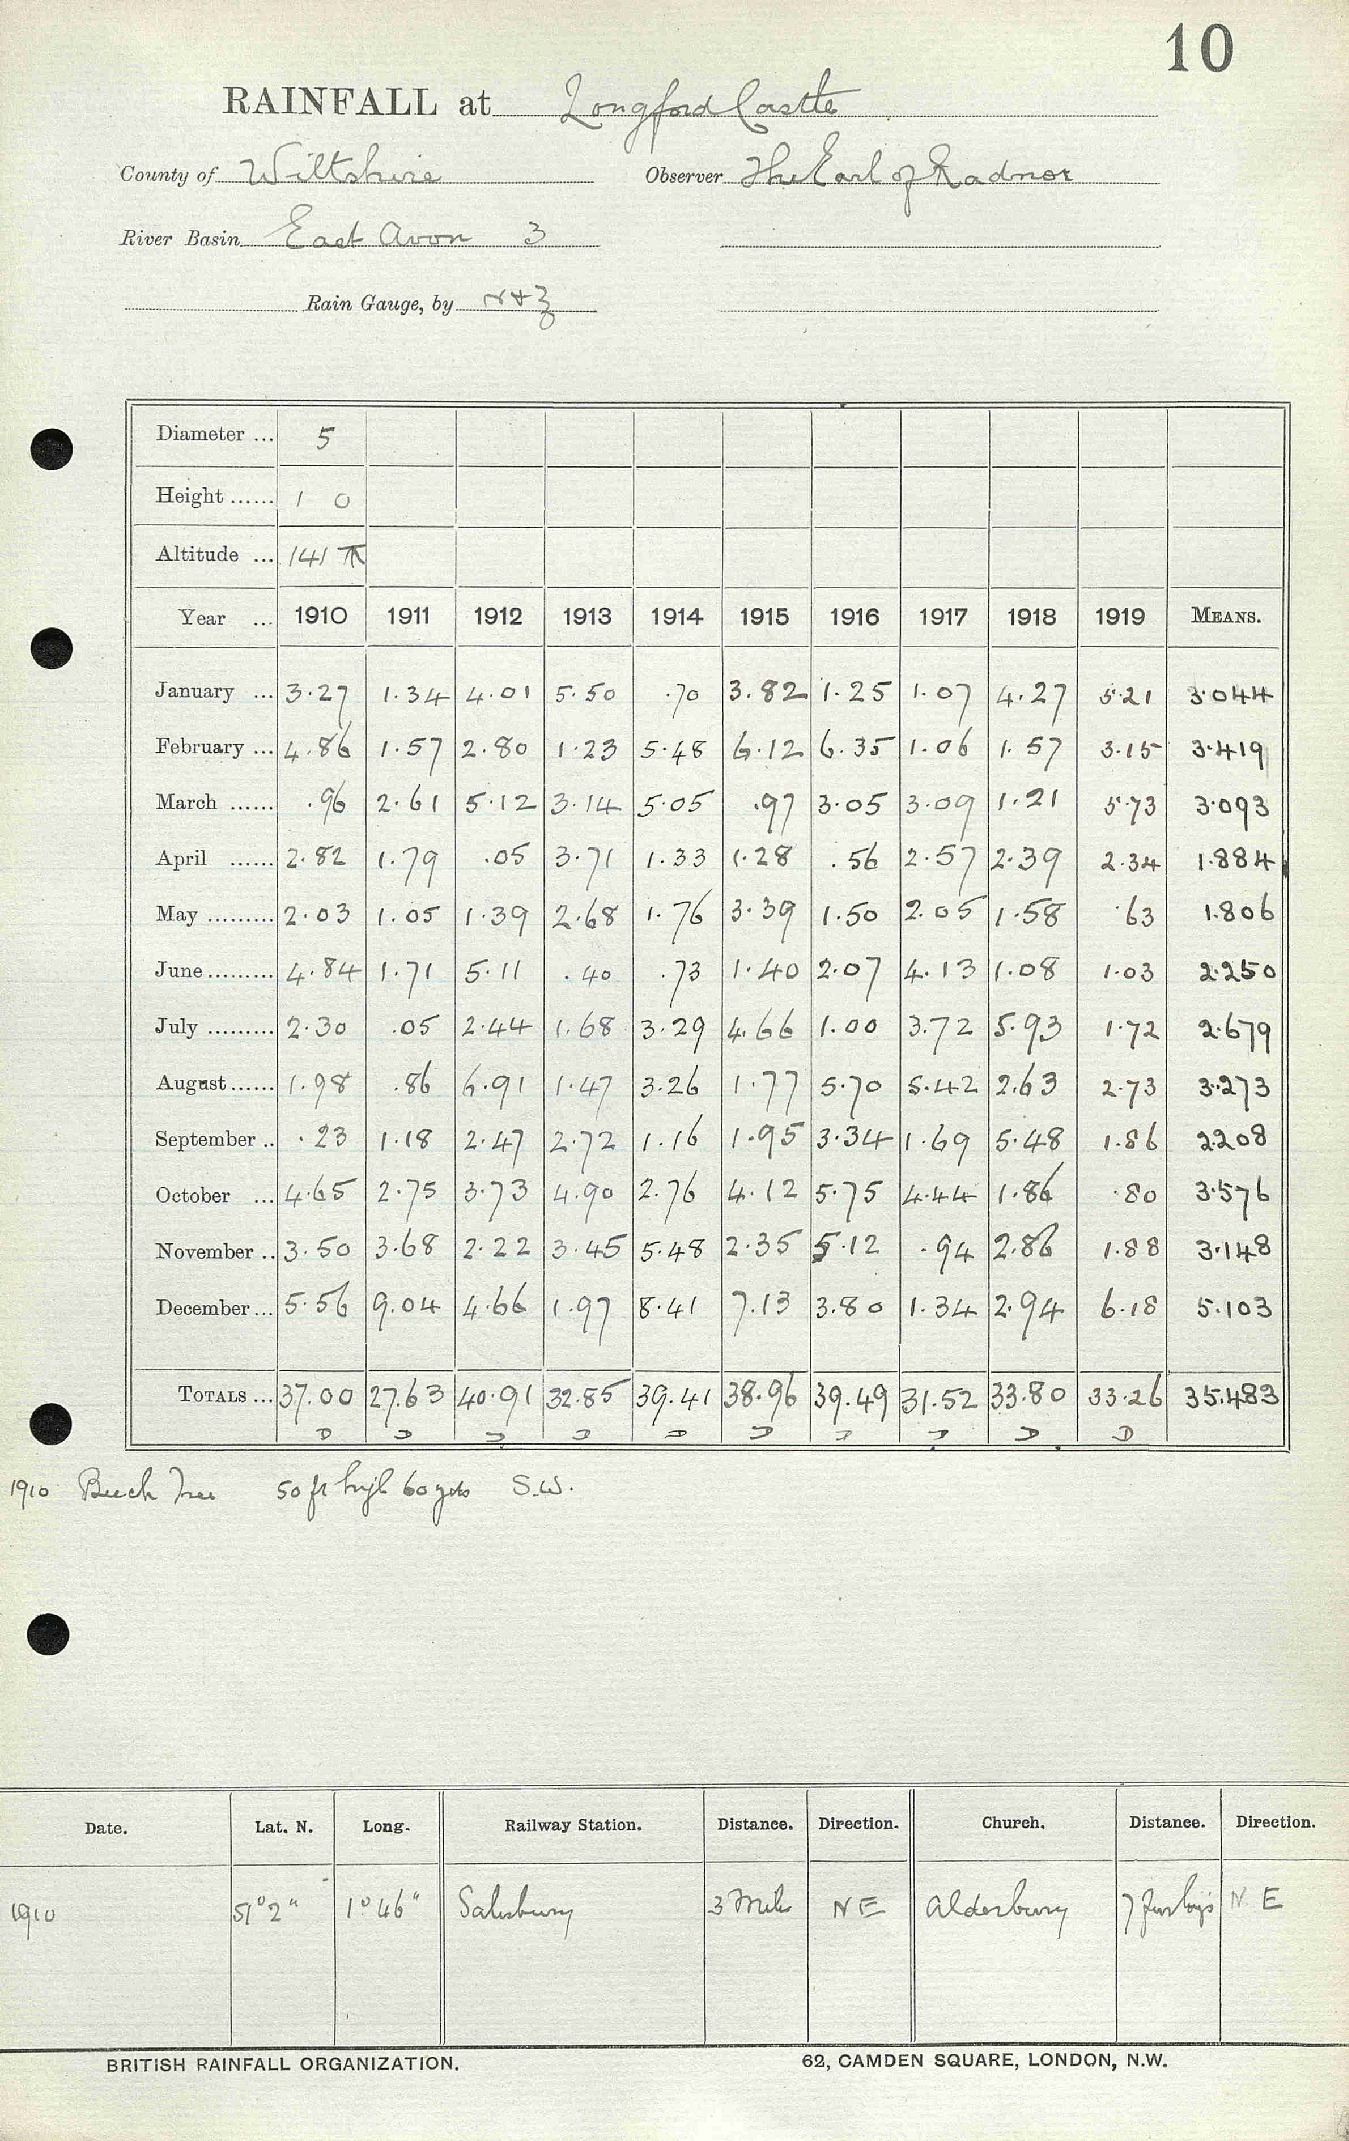 10
RAINFALL at Longford Castle
County of Wiltshire Observer The Earl of Radnor
River Basin East Avon 3
Rain Gauge, by N+Z
Diameter ... 5
Height ...... 1 0
Altitude ... 141
Year ... 1910 1911 1912 1913 1914 1915 1916 1917 1918 1919 MEANS.
January ... 3.27 1.34 4.01 5.50 .70 3.82 1.25 1.07 4.27 5.21 3.044
February ... 4.86 1.57 2.80 1.23 5.48 6.12 6.35 1.06 1.57 3.15 3.419
March ...... .96 2.61 5.12 3.14 5.05 .97 3.05 3.09 1.21 5.73 3.093
April ...... 2.82 1.79 .05 3.71 1.33 1.28 .56 2.57 2.39 2.34 1.884
May ......... 2.03 1.05 1.39 2.68 1.76 3.39 1.50 2.05 1.58 .63 1.806
June ......... 4.84 1.71 5.11 .40 .73 1.40 2.07 4.13 1.08 1.03 2.250
July ......... 2.30 .05 2.44 1.68 3.29 4.66 1.00 3.72 5.93 1.72 2.679
August ...... 1.98 .86 6.91 1.47 3.26 1.77 5.70 5.42 2.63 2.73 3.273
September .. .23 1.18 2.47 2.72 1.16 1.95 3.34 1.69 5.48 1.86 2.208
October ... 4.65 2.75 3.73 4.90 2.76 4.12 5.75 4.44 1.86 .80 3.576
November .. 3.50 3.68 2.22 3.45 5.48 2.35 5.12 .94 2.86 1.88 3.148
December ... 5.56 9.04 4.66 1.97 8.41 7.13 3.80 1.34 2.94 6.18 5.103
TOTALS ... 37.00 27.63 40.91 32.85 39.41 38.96 39.49 31.52 33.80 33.26 35.483
D D D D D D D D D D
1910 Beech Tree 50 ft high 60 yds S.W.
Date. Lat. N. Long. Railway Station. Distance. Direction. Church. Distance. Direction.
1910 51°2" 1°46" Salisbury 3 Miles NE Alderbury 7 furlongs N.E
BRITISH RAINFALL ORGANIZATION. 62, CAMDEN SQUARE, LONDON, N.W.